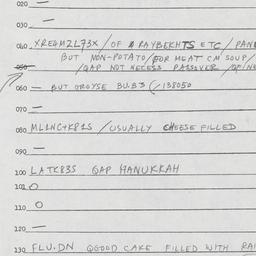 020 —
030 —
040 XREOMZL73X / OF & RAYBEKHTS ETC / PANE
BUT NON-POTATO / FOR MEAT CM SOUP /
050 / QAP NOT NECESS PASSOVER / OF NE
060 — BUT GROYSE BUBS (-138050
070 —
080 MLLNC+K81S / USUALLY CHEESE FILLED
090 —
100 LATK83S QAP HANUKKAH
101 O
110 O
120 —
130 FLU.DN QGOOD CAKE FILLED WITH RAI